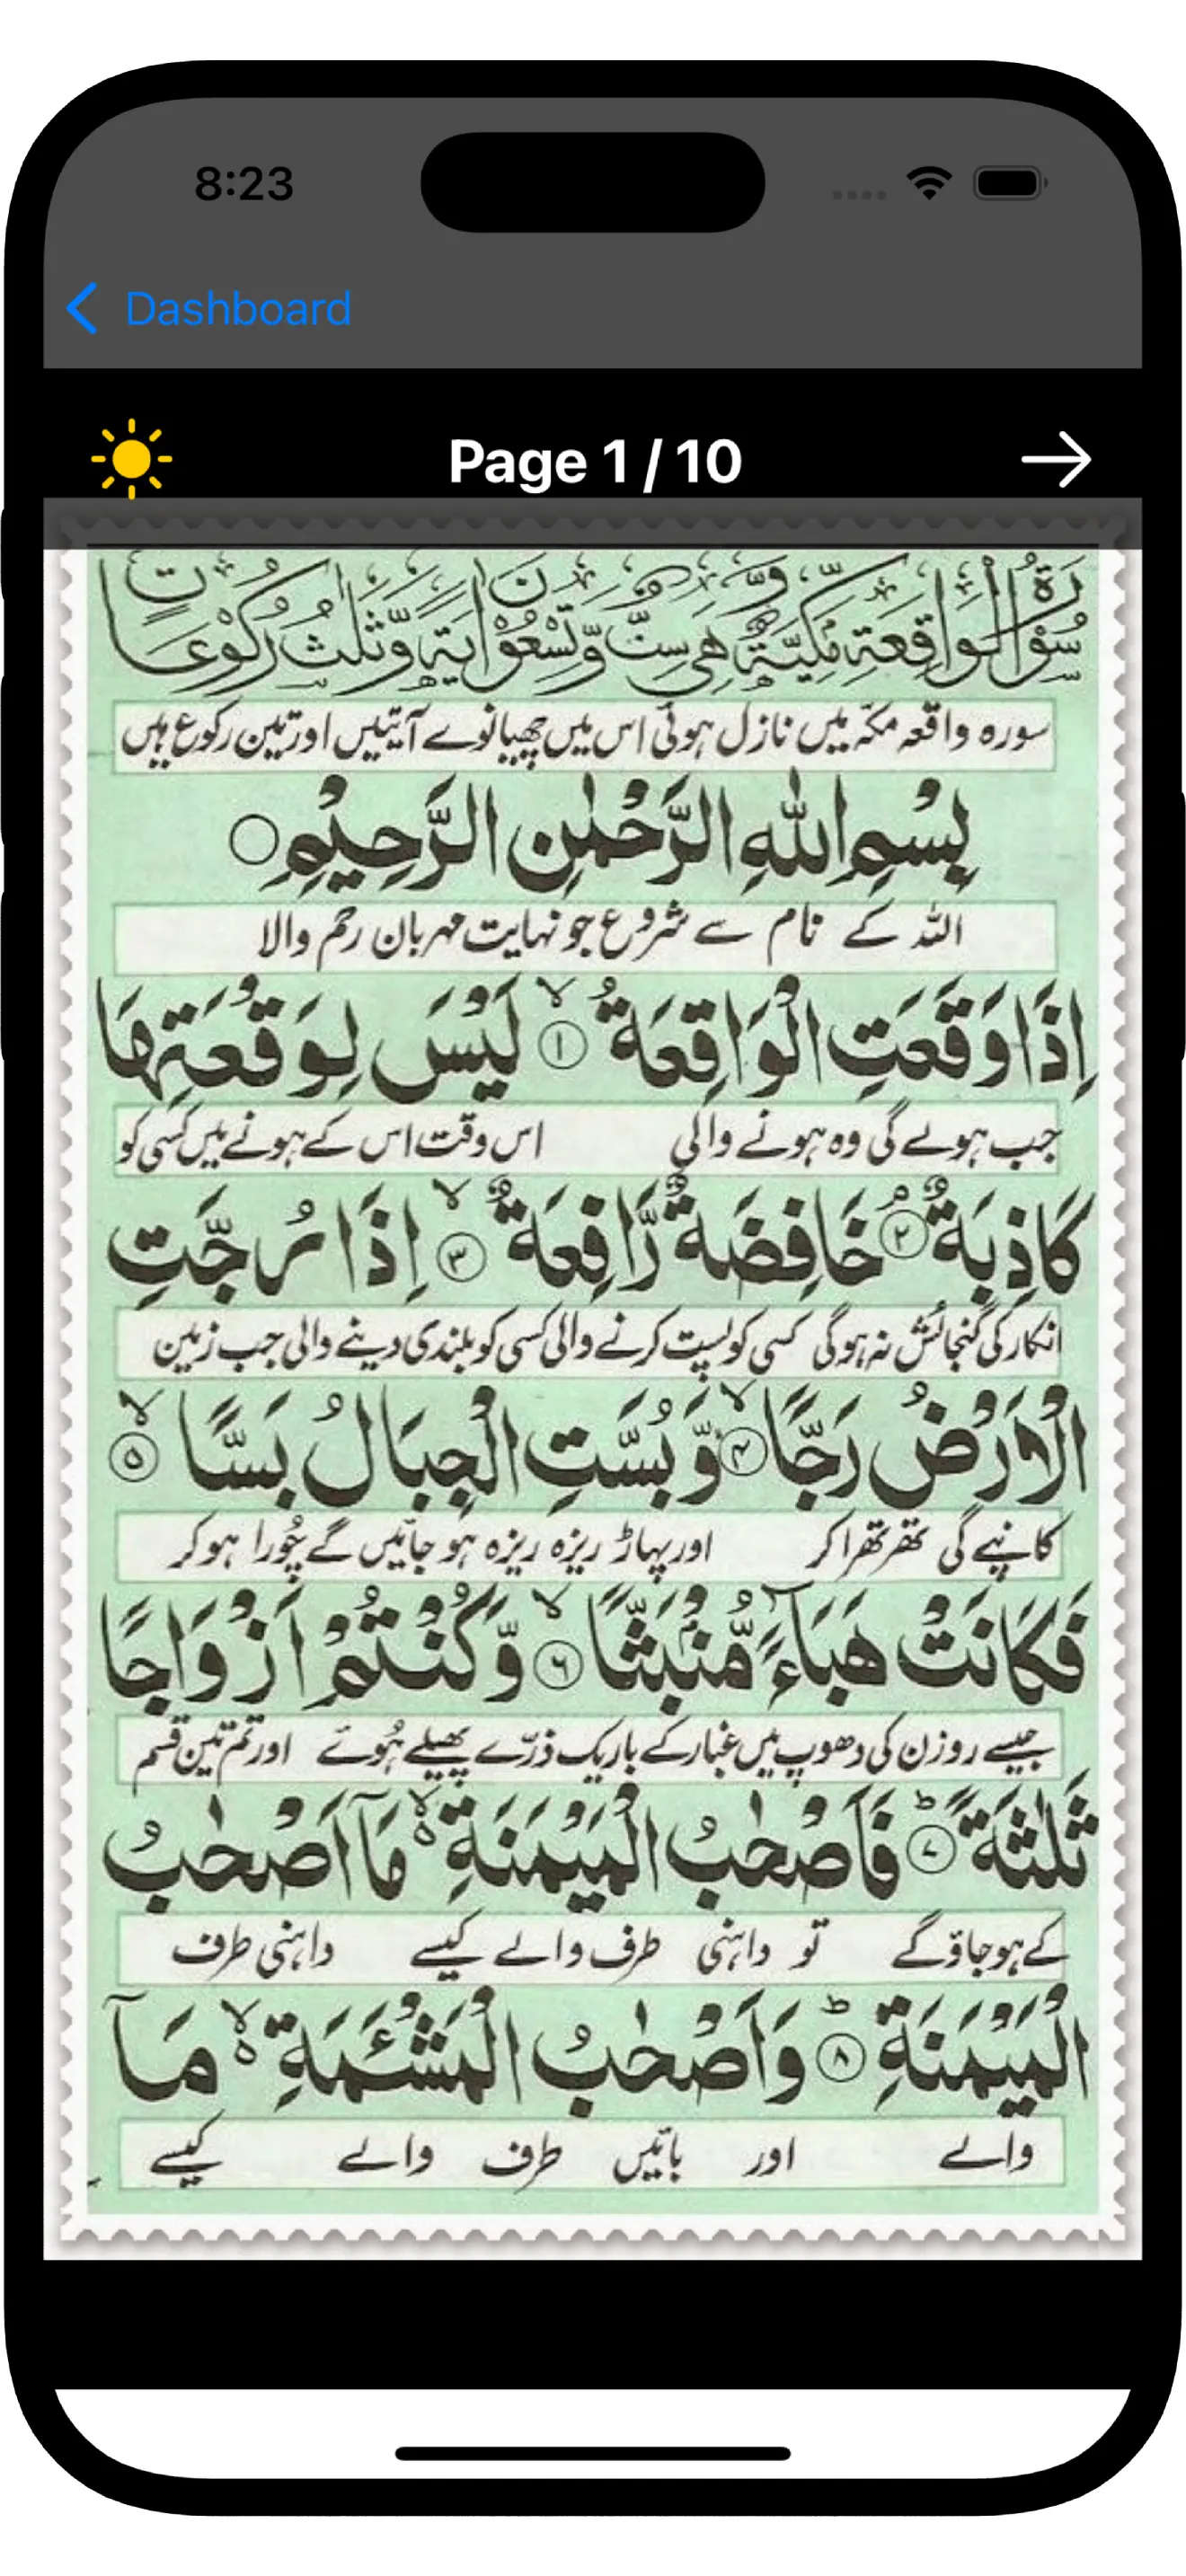 8:23
Dashboard
Page 1 / 10
سُوْرَةُ الْوَاقِعَةِ مَكِّيَّةٌ وَّهِيَ سِتٌّ وَّتِسْعُوْنَ اٰيَةً وَّثَلٰثُ رُكُوْعَاتٍ
سورہ واقعہ مکّہ میں نازل ہوئی اس میں چھیانوے آیتیں اور تین رکوع ہیں
بِسْمِ اللّٰهِ الرَّحْمٰنِ الرَّحِيْمِ ○
اللہ کے نام سے شروع جو نہایت مہربان رحم والا
اِذَا وَقَعَتِ الْوَاقِعَةُ ۙ ۱ لَيْسَ لِوَقْعَتِهَا
جب ہولے گی وہ ہونے والی اس وقت اس کے ہونے میں کسی کو
كَاذِبَةٌ ۘ ۲ خَافِضَةٌ رَّافِعَةٌ ۙ ۳ اِذَا رُجَّتِ
انکار کی گنجائش نہ ہوگی کسی کو پست کرنے والی کسی کو بلندی دینے والی جب زمین
الْاَرْضُ رَجًّا ۙ ۴ وَّبُسَّتِ الْجِبَالُ بَسًّا ۙ ۵
کانپے گی تھرتھرا کر اور پہاڑ ریزہ ریزہ ہو جائیں گے چُورا ہوکر
فَكَانَتْ هَبَآءً مُّنْۢبَثًّا ۙ ۶ وَّكُنْتُمْ اَزْوَاجًا
جیسے روزن کی دھوپ میں غبار کے باریک ذرّے پھیلے ہُوئے اور تم تین قسم
ثَلٰثَةً ؕ ۷ فَاَصْحٰبُ الْمَيْمَنَةِ ۙ۬ مَاۤ اَصْحٰبُ
کے ہوجاؤ گے تو داہنی طرف والے کیسے داہنی طرف
الْمَيْمَنَةِ ؕ ۸ وَاَصْحٰبُ الْمَشْـَٔمَةِ ۙ۬ مَاۤ
والے اور بائیں طرف والے کیسے